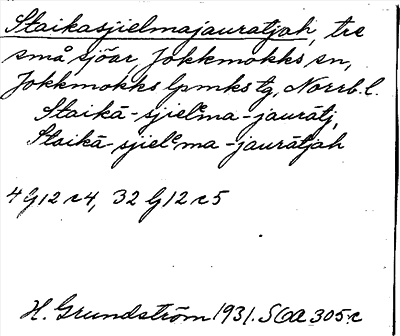 Staikasjielmajauratjah, tre
små sjöar, Jokkmokks sn,
Jokkmokks lpmks tg, Norrb. l.
Staikā-sjielᵉma-jaurātj,
Staikā-sjielᵉma-jaurātjah
4 G 12 r 4, 32 G 12 r 5
H. Grundström 1931. SOA 305:c